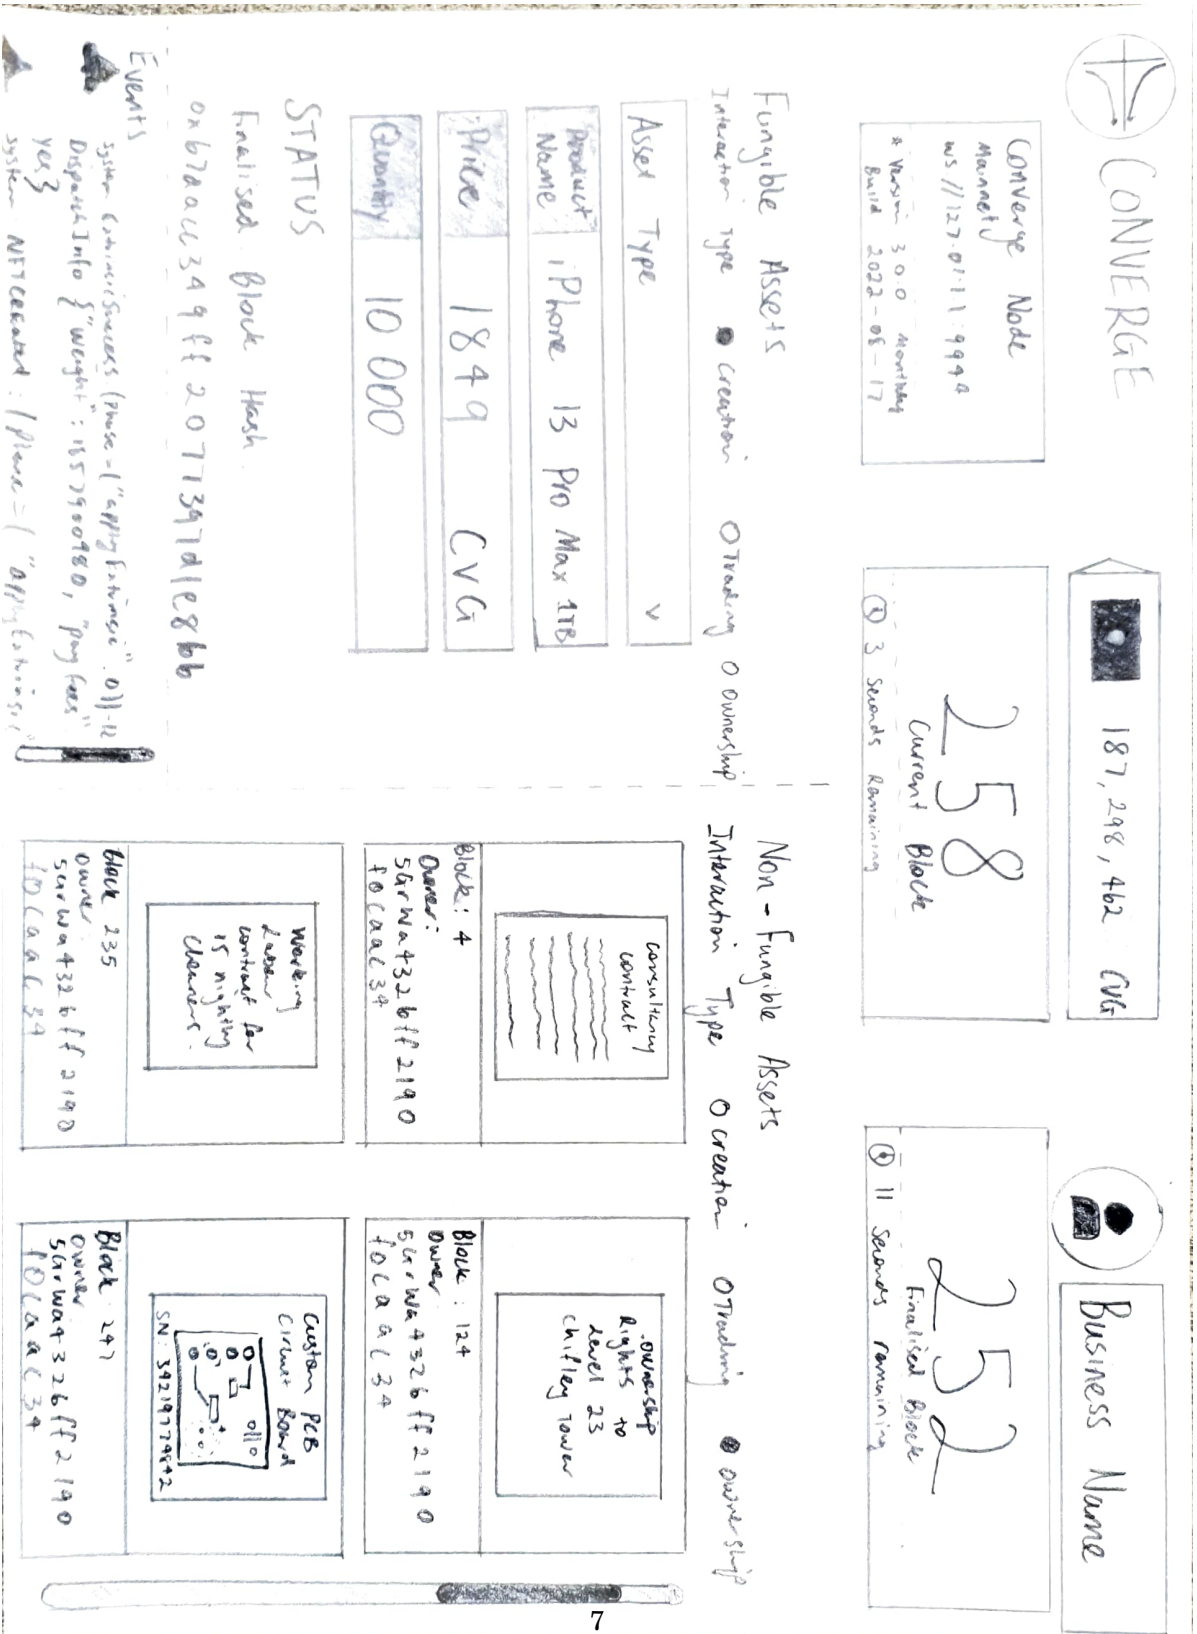 CONVERGE
187,298,462 CVG
Business Name
Converge Node
Mainnet
ws://127.0.1.1:9944
* Version 3.0.0 Monthly
Build 2022-08-17
258
Current Block
3 seconds Remaining
252
Finalised Block
11 seconds remaining
Fungible Assets
Interaction Type creation Trading ownership
Asset Type v
Product
Name
iPhone 13 Pro Max 1TB
Price 1849 CVG
Quantity 10 000
STATUS
Finalised Block Hash
0x67aacc349ff2077397d1e86b
Events
DispatchInfo {"weight": 157900980, "pay fees"
yes}
Non-Fungible Assets
Interaction Type creation Trading ownership
consultancy
contract
Block: 4
Owner:
5Grwa432bff2190
f0caac34
ownership
Rights to
Level 23
Chifley Tower
Block: 124
owner
5Grwa432bff2190
f0caac34
Working
Labour
contract for
15 nightly
cleaners.
block 235
owner:
5Grwa432bff2190
f0caac34
Custom PCB
Circuit Board
SN: 34219779842
Block 247
owner:
5Grwa432bff2190
f0caac34
7